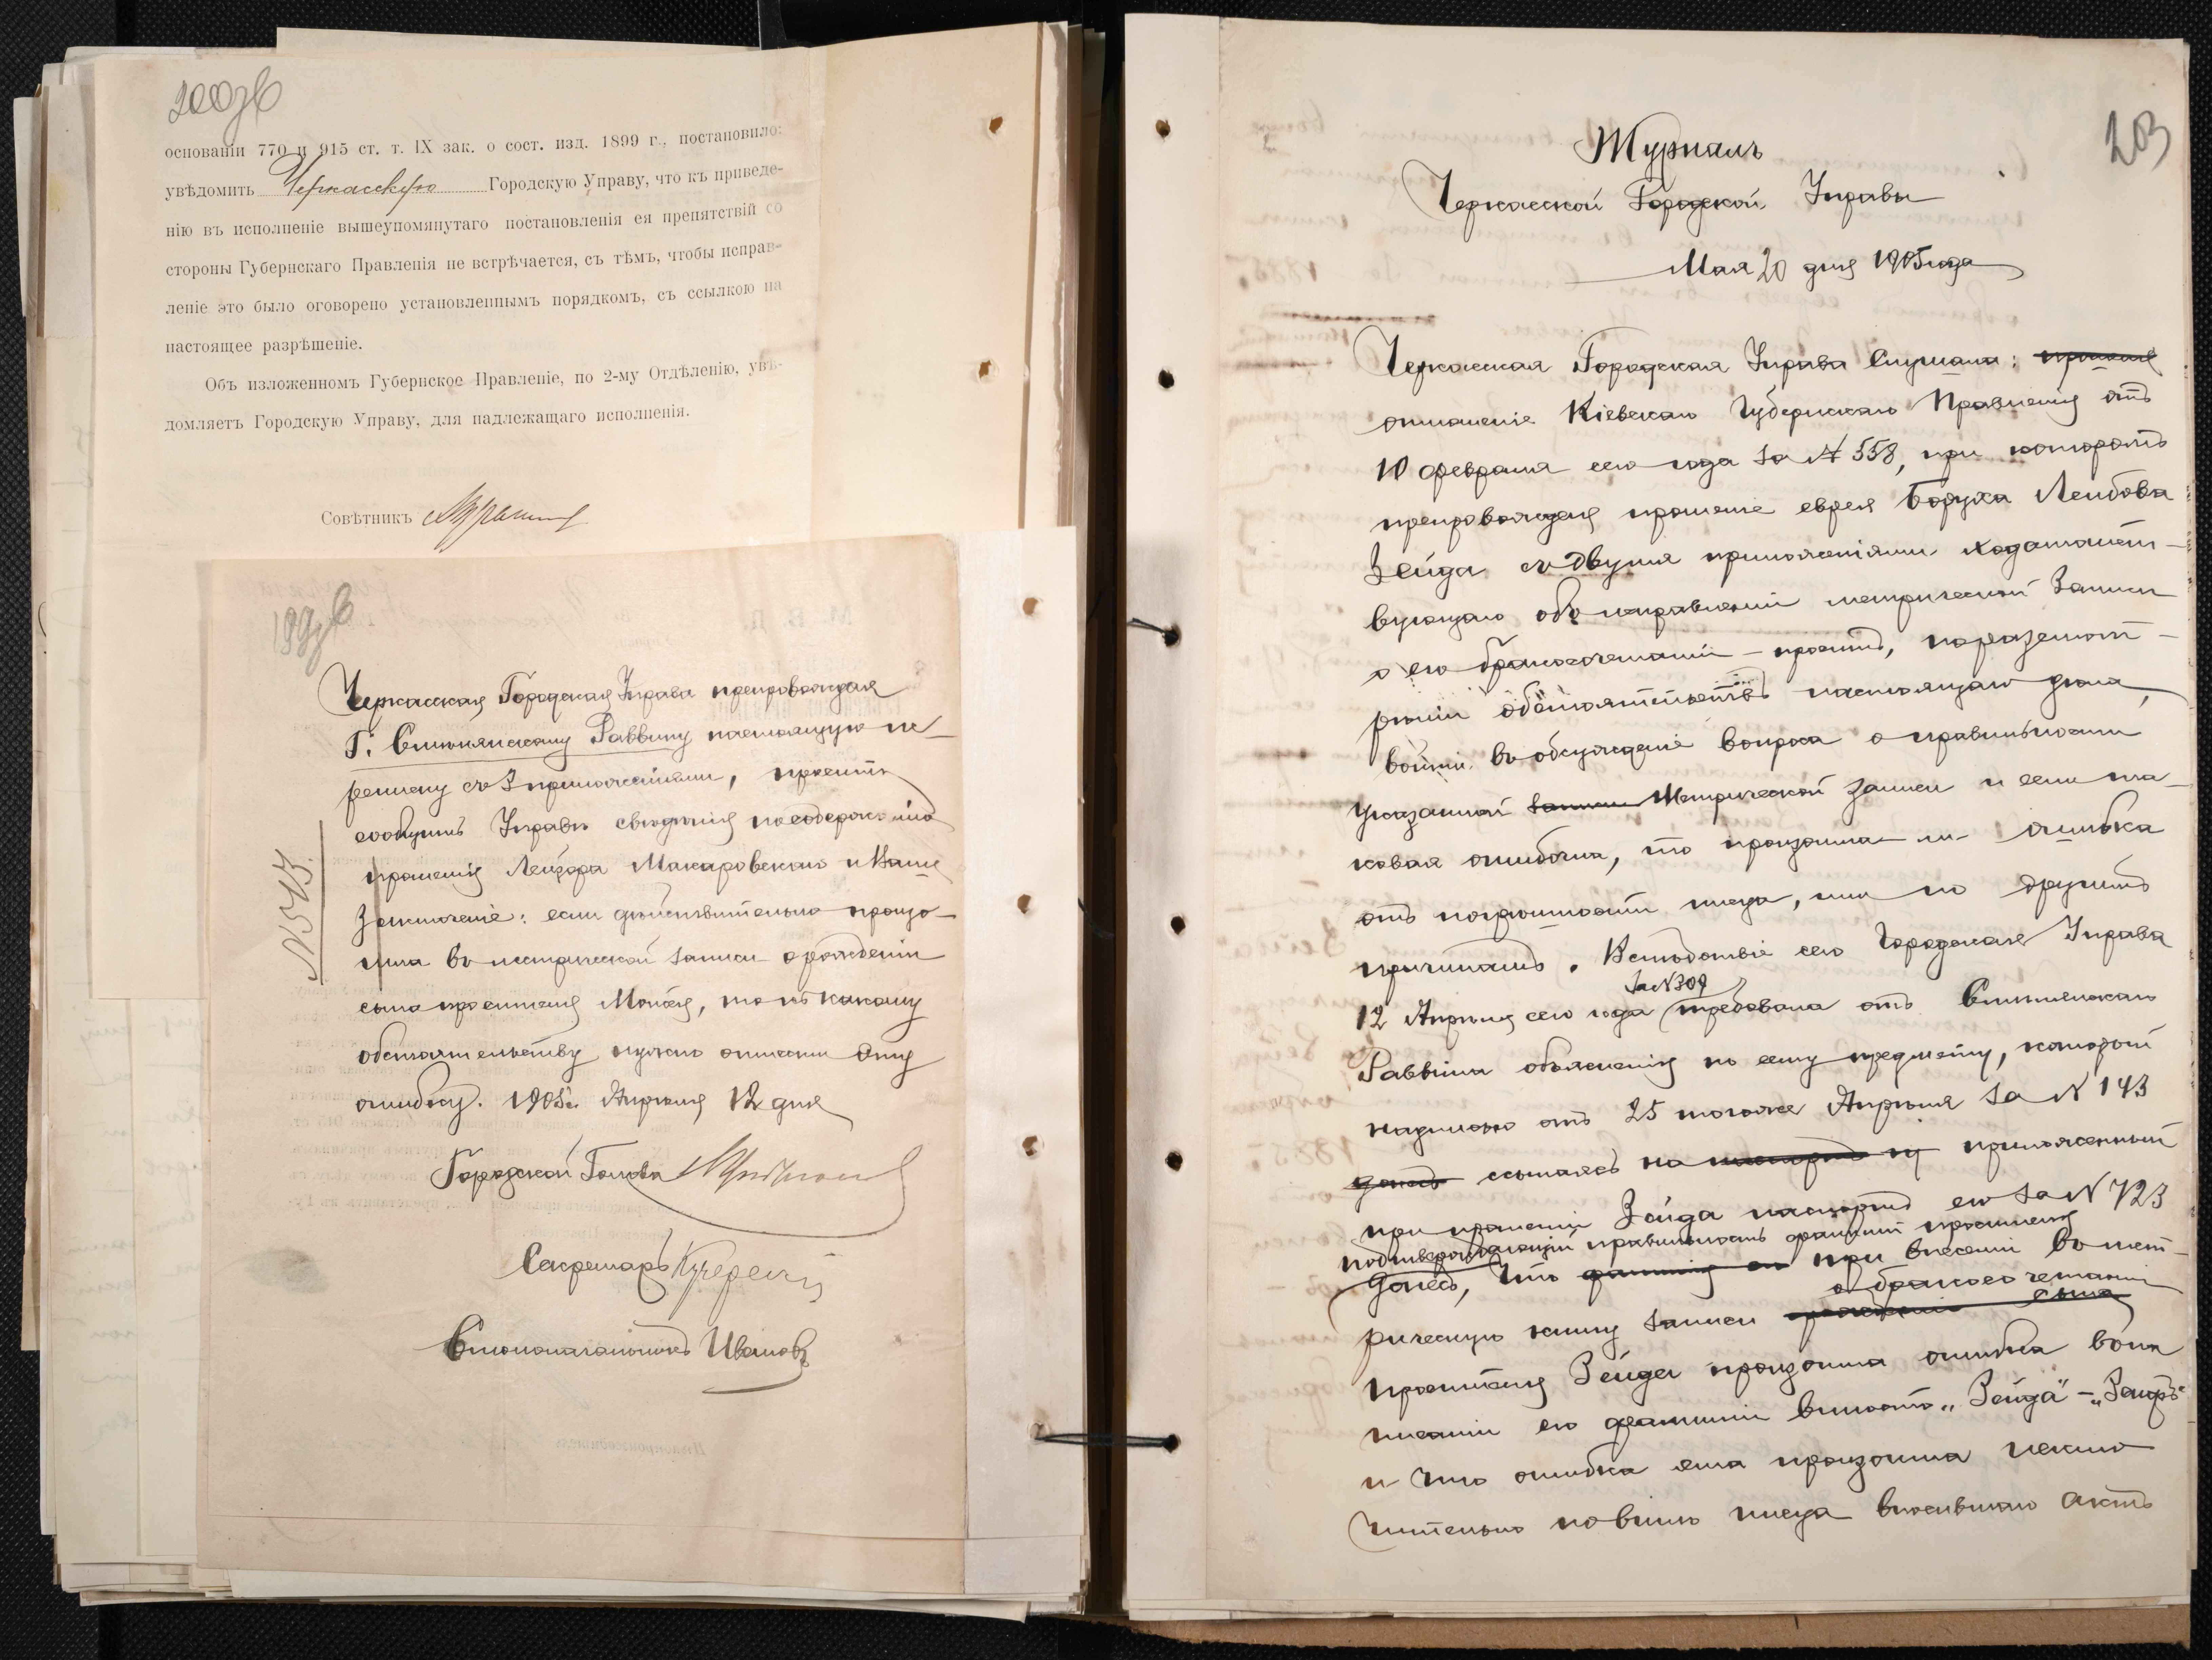 200об
основаніи 770 и 915 ст. т. IX зак. о сост. изд. 1899 г., постановило:
увѣдомить Черкасскую Городскую Управу, что къ приведе-
нію въ исполненіе вышеупомянутаго постановленія ея препятствій со
стороны Губернскаго Правленія не встрѣчается, съ тѣмъ, чтобы исправ-
леніе это было оговорено установленнымъ порядкомъ, съ ссылкою на
настоящее разрѣшеніе.
Объ изложенномъ Губернское Правленіе, по 2-му Отдѣленію, увѣ-
домляетъ Городскую Управу, для надлежащаго исполненія.
Совѣтникъ
199об
Черкасская Городская Управа препровождая
Г. Смѣлянскому Раввину настоящую пе-
реписку съ 3 приложеніями, проситъ
сообщить Управѣ свѣдѣнія по содержанію
прошенія Лейзора Макаровскаго и Ваше
заключеніе: если дѣйствительно произо-
шла въ метрической записи о рожденіи
сына просителя Моисея, то къ какому
обстоятельству нужно отнести эту
ошибку. 1905 г. Апрѣля 12 дня
Городской Голова
Секретарь
Столоначальникъ Ивановъ
203
Журналъ
Черкасской Городской Управы
Мая 20 дня 1905 года
Черкасская Городская Управа Слушала:
отношеніе Кіевскаго Губернскаго Правленія отъ
10 февраля сего года за № 558, при которомъ
препровождая прошеніе еврея Боруха Лейбова
Зейда съ двумя приложеніями ходатайст-
вующаго объ исправленіи метрической записи
о его бракосочетаніи – проситъ, по разсмот-
рѣніи обстоятельствъ настоящаго дѣла,
войти въ обсужденіе вопроса о правильности
указанной записи Метрической записи и если та-
ковая ошибочна, то произошла ли ошибка
отъ погрѣшности писца, или по другимъ
причинамъ. Вслѣдствіе сего Городская Управа
за № 309
12 Апрѣля сего года требовала отъ Смѣлянскаго
Раввина объясненія по сему предмету, который
надписью отъ 25 того же Апрѣля за № 143
донесъ ссылаясь на паспортъ приложенный
при прошеніи Зейда паспортъ его за № 723
подтверждающій правильность фамиліи просителя
донесъ, что фамилія его при внесеніи въ мет-
о бракосочетаніи
рическую книгу записи рожденія сына
просителя Зейда произошла ошибка въ на-
писаніи его фамиліи вмѣсто „Зейда“ –
и что ошибка эта произошла исклю-
чительно по винѣ писца вносившаго актъ